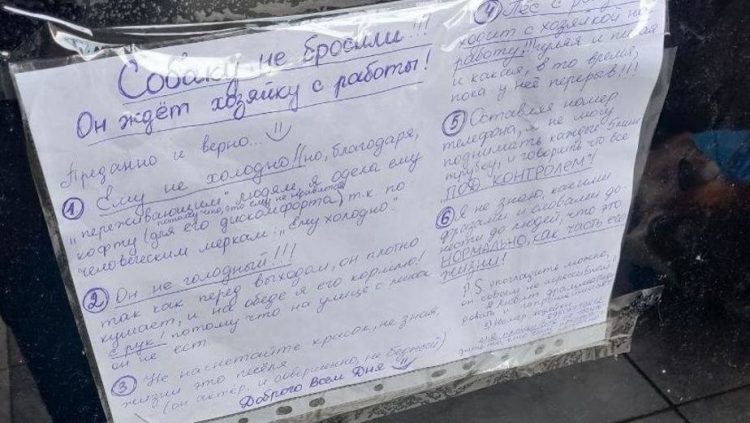 Собаку не бросили!!!
Он ждёт хозяйку с работы!
Преданно и верно...
① Ему не холодно!! но, благодаря,
"переживающим" людям я одела ему
потому что, это ему не нравится
кофту (для его дискомфорта) т.к. по
человеческим меркам: "ему холодно".
② Он не голодный!!!
так как перед выходом, он плотно
кушает, и на обеде я его кормлю!
с рук, потому что на улице с миски
он не ест
③ Не нагнетайте красок, не зная,
жизни это пёселя
(он актёр, и совершенно, не бедный)
Доброго Всем Дня
④ Пёс с
ходит с хозяйкой на
работу!!! гуляя и писая
и какая, в то время,
пока у неё перерыв!!!
⑤ Оставляя номер
телефона, я не могу
поднимать каждые 5 мин
трубку, и говорить что все
"ПОД КОНТРОЛЕМ"!
⑥ Я не знаю, какими
фразами и словами до-
нести до людей, что это
НОРМАЛЬНО, как часть его
жизни!
P.S. погладить можно,
он совсем не агрессивный